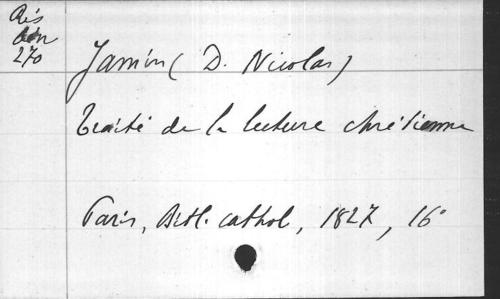 Rés
270
Jamin (D. Nicolas)
Traité de la lecture chrétienne
Paris, Bibl. cathol, 1827, 16°